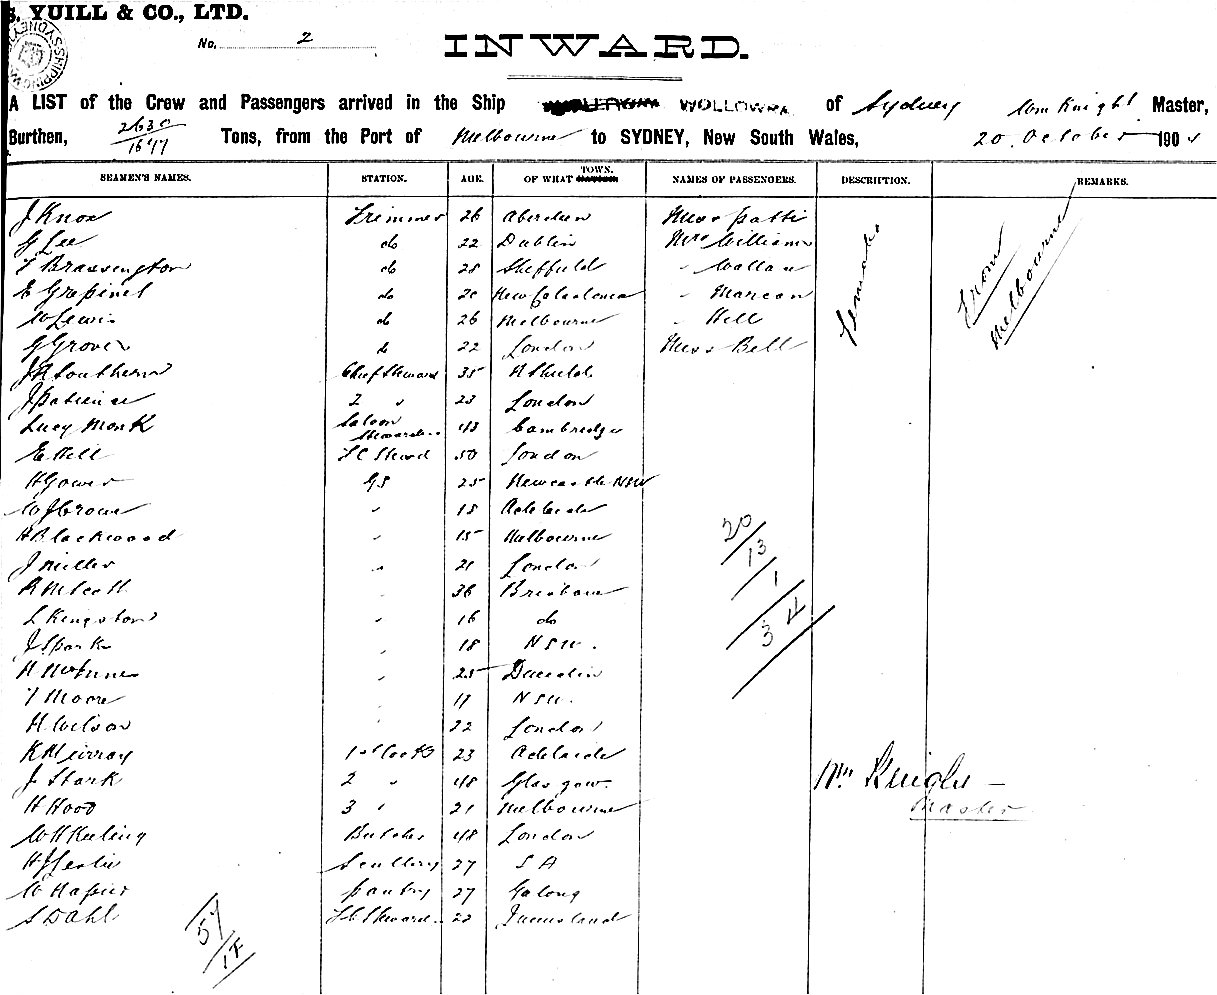 . YUILL & CO., LTD.
No. 2
INWARD.
A LIST of the Crew and Passengers arrived in the Ship WOLLOWRA of Sydney Wm Knight Master,
Burthen, 2630/1647 Tons, from the Port of Melbourne to SYDNEY, New South Wales, 20 October 190
SEAMEN'S NAMES. STATION. AGE. OF WHAT TOWN. NAMES OF PASSENGERS. DESCRIPTION. REMARKS.
J Knox Trimmer 26 Aberdeen Miss Patti
G Lee do 22 Dublin Mrs Williams
F Brassington do 28 Sheffield " Wallace
E do 20 New Caledonia "
W Lewis do 26 Melbourne " Hill
G Grover do 22 London Miss Bell
Female
From Melbourne
J A Southern Chief Steward 35
J Patience 2 " 23 London
Lucy Monk Saloon Stewardess 43 Cambridge
E Hill F C Steward 50 London
H Gower GS 25 Newcastle NSW
W J Crowe " 18 Adelaide
H Blackwood " 15 Melbourne
J Miller " 21 London
" 36 Brisbane
L Kingston " 16 do
J Spark " 18 NSW.
" 25 Dunedin
T Moore " 17 NSW.
H Wilson " 22 London
K Murray 1st Cook 23 Adelaide
J Stark 2 " 48 Glasgow
H Hood 3 " 21 Melbourne
W H Keeling Butcher 48 London
H J Leslie Scullery 27 S A
W Napier Pantry 27 Galong
S Dahl Steward 22 Queensland
20/13/1
34
Wm Knight
Master
57/17